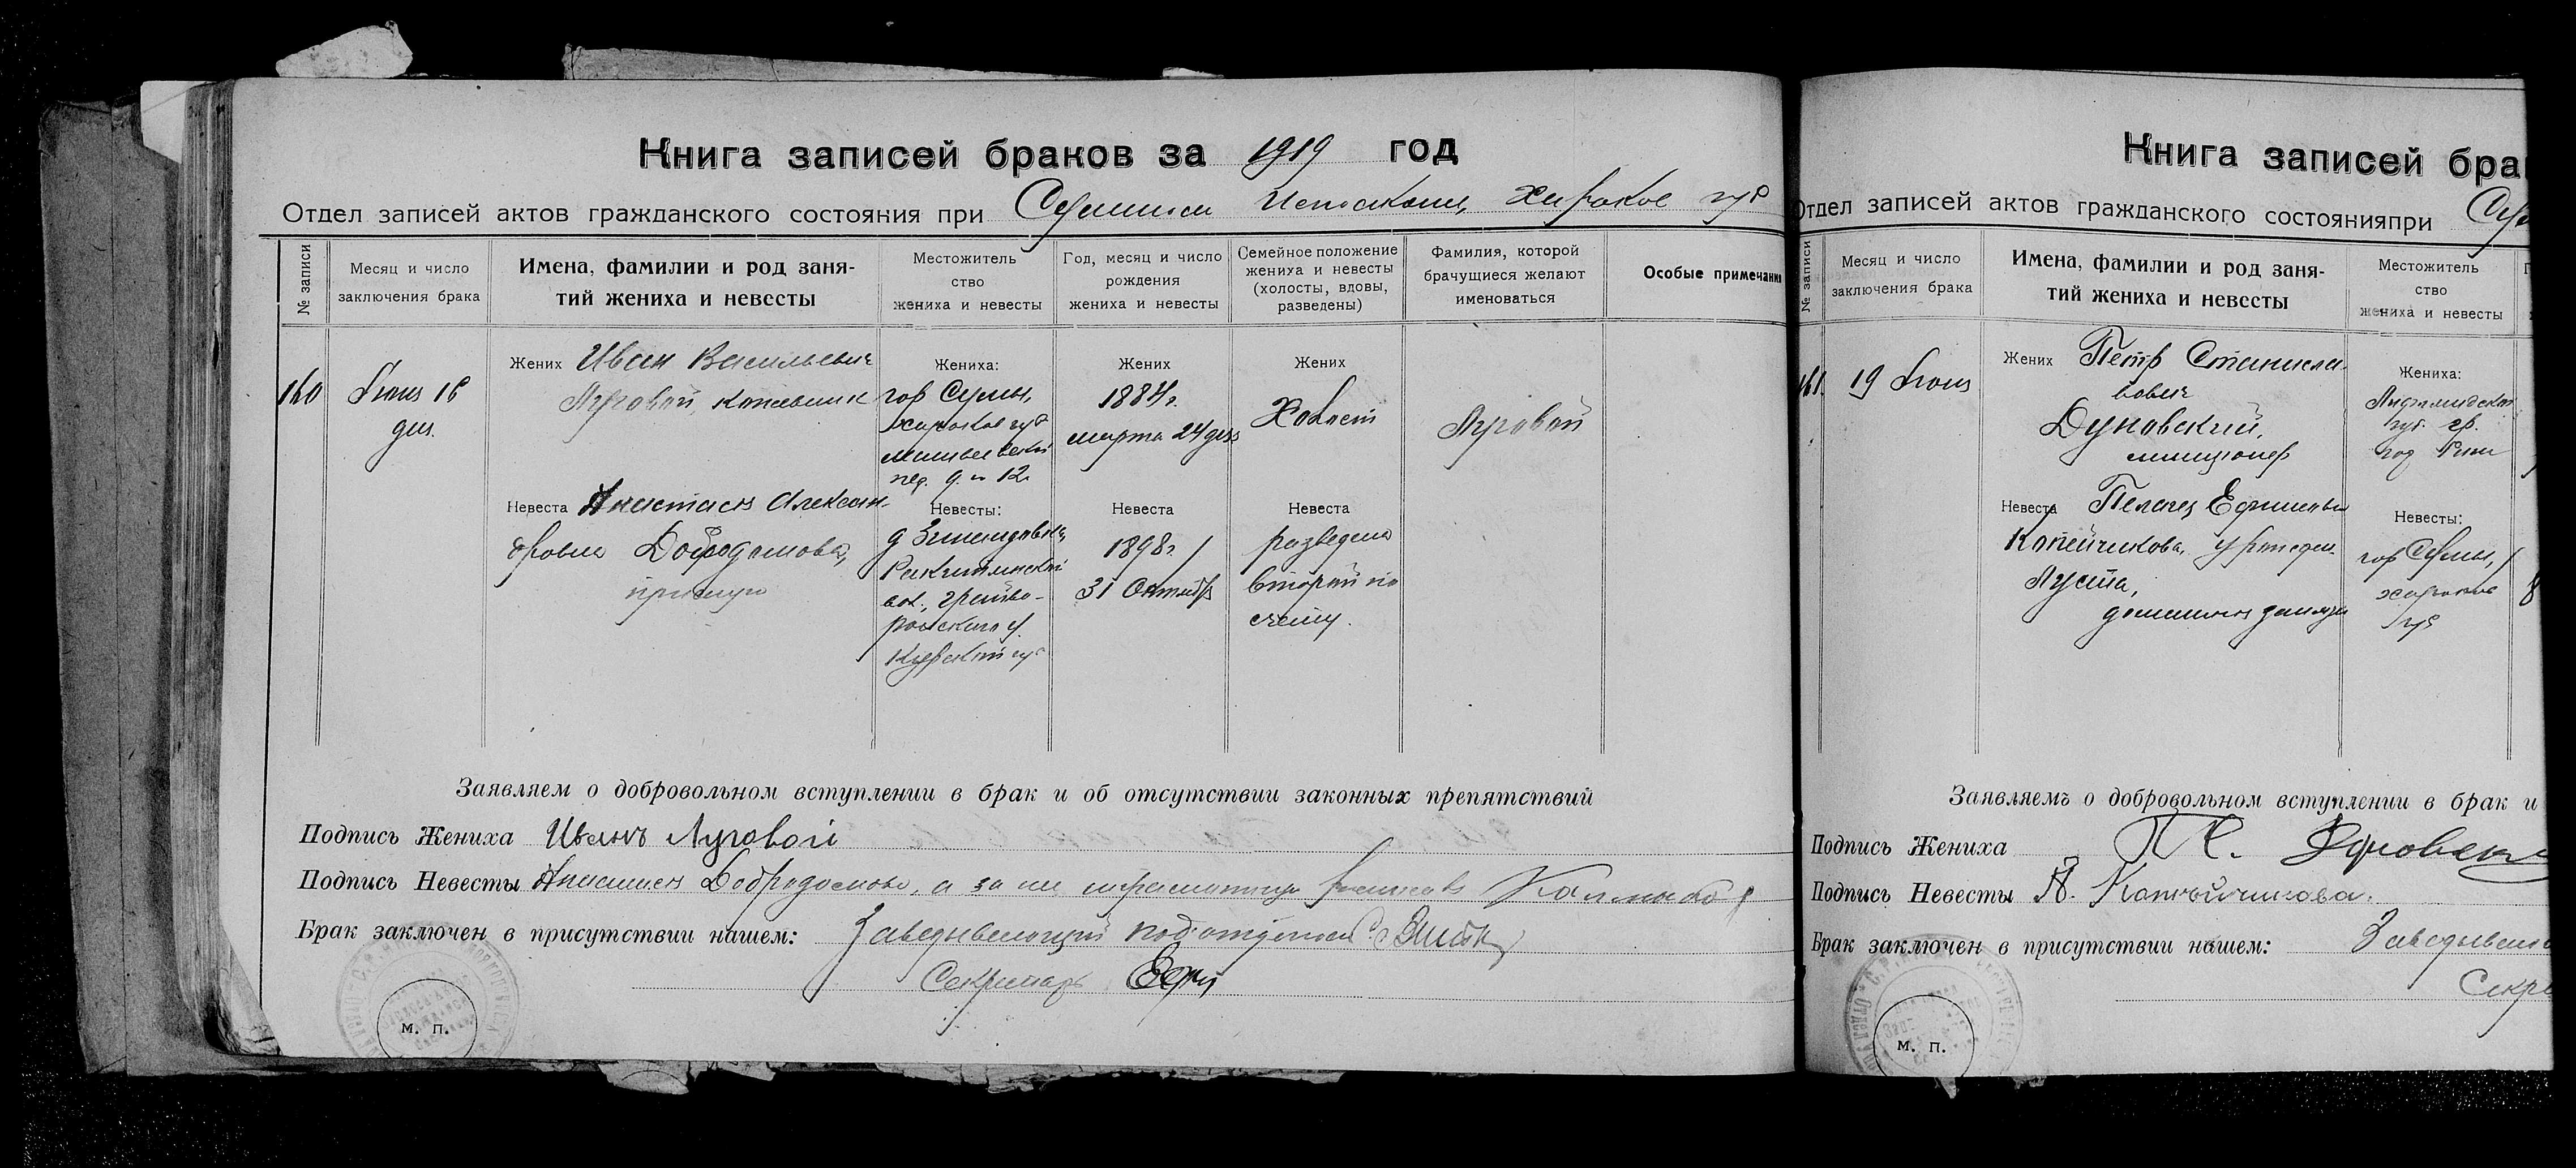 Книга записей браков за 1919 год
Отдел записей актов гражданского состояния при Сумском Исполкоме, Харьков губ
№ записи
Месяц и число
заключения брака
Имена, фамилии и род заня-
тий жениха и невесты
Местожитель
ство
жениха и невесты
Год, месяц и число
рождения
жениха и невесты
Семейное положение
жениха и невесты
(холосты, вдовы,
разведены)
Фамилия, которой
брачущиеся желают
именоваться
Особые примечани
160
Июня 18
дня.
Жених Иван Васильевич
Луговой, котельщик
Невеста Анастасия Алексан-
дровна Добродомова,
Жениха:
гор Сумы,
харьков губ
пер. д. № 12
Невесты:
вол., Грайво-
ронского у.
Курской губ
Жених
1884 г.
марта 24 дня
Невеста
1898 г.
31 Октября
Жених
Холост
Невеста
разведена
второй по
счету.
Луговой
Заявляем о добровольном вступлении в брак и об отсутствии законных препятствий
Подпись Жениха Иванъ Луговой
Подпись Невесты Анастасия Добродомова, а за не
Брак заключен в присутствии нашем: Заведывающий подотделом
Секретарь
м. п.
Книга записей бра
Отдел записей актов гражданского состоянияпри Сум
№ записи
Месяц и число
заключения брака
Имена, фамилии и род заня-
тий жениха и невесты
Местожитель
ство
жениха и невесты
161.
19 Июня
Жених Петр Станисла-
вович
Дуновский,
милиционер
Невеста Пелагея Ефимовна
Копейчикова, урожден.
домашния занятия
Жениха:
Лифляндской
губ. гр.
гор Риги
Невесты:
гор Сумы,
харьков
губ
8
Заявляемъ о добровольном вступлении в брак и
Подпись Жениха П. С. Дуновск
Подпись Невесты П. Копейчикова.
Брак заключен в присутствии нашем: Заведываю
Секре
м. п.